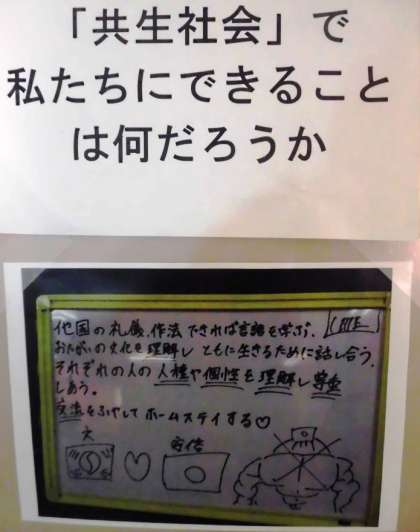 「共生社会」で
私たちにできること
は何だろうか
他国の礼儀、作法 できれば言語を学ぶ。
おたがいの文化を理解し ともに生きるために話し合う。
それぞれの人の人種や個性を理解し尊重
しあう。
交流をふやして ホームステイする♡